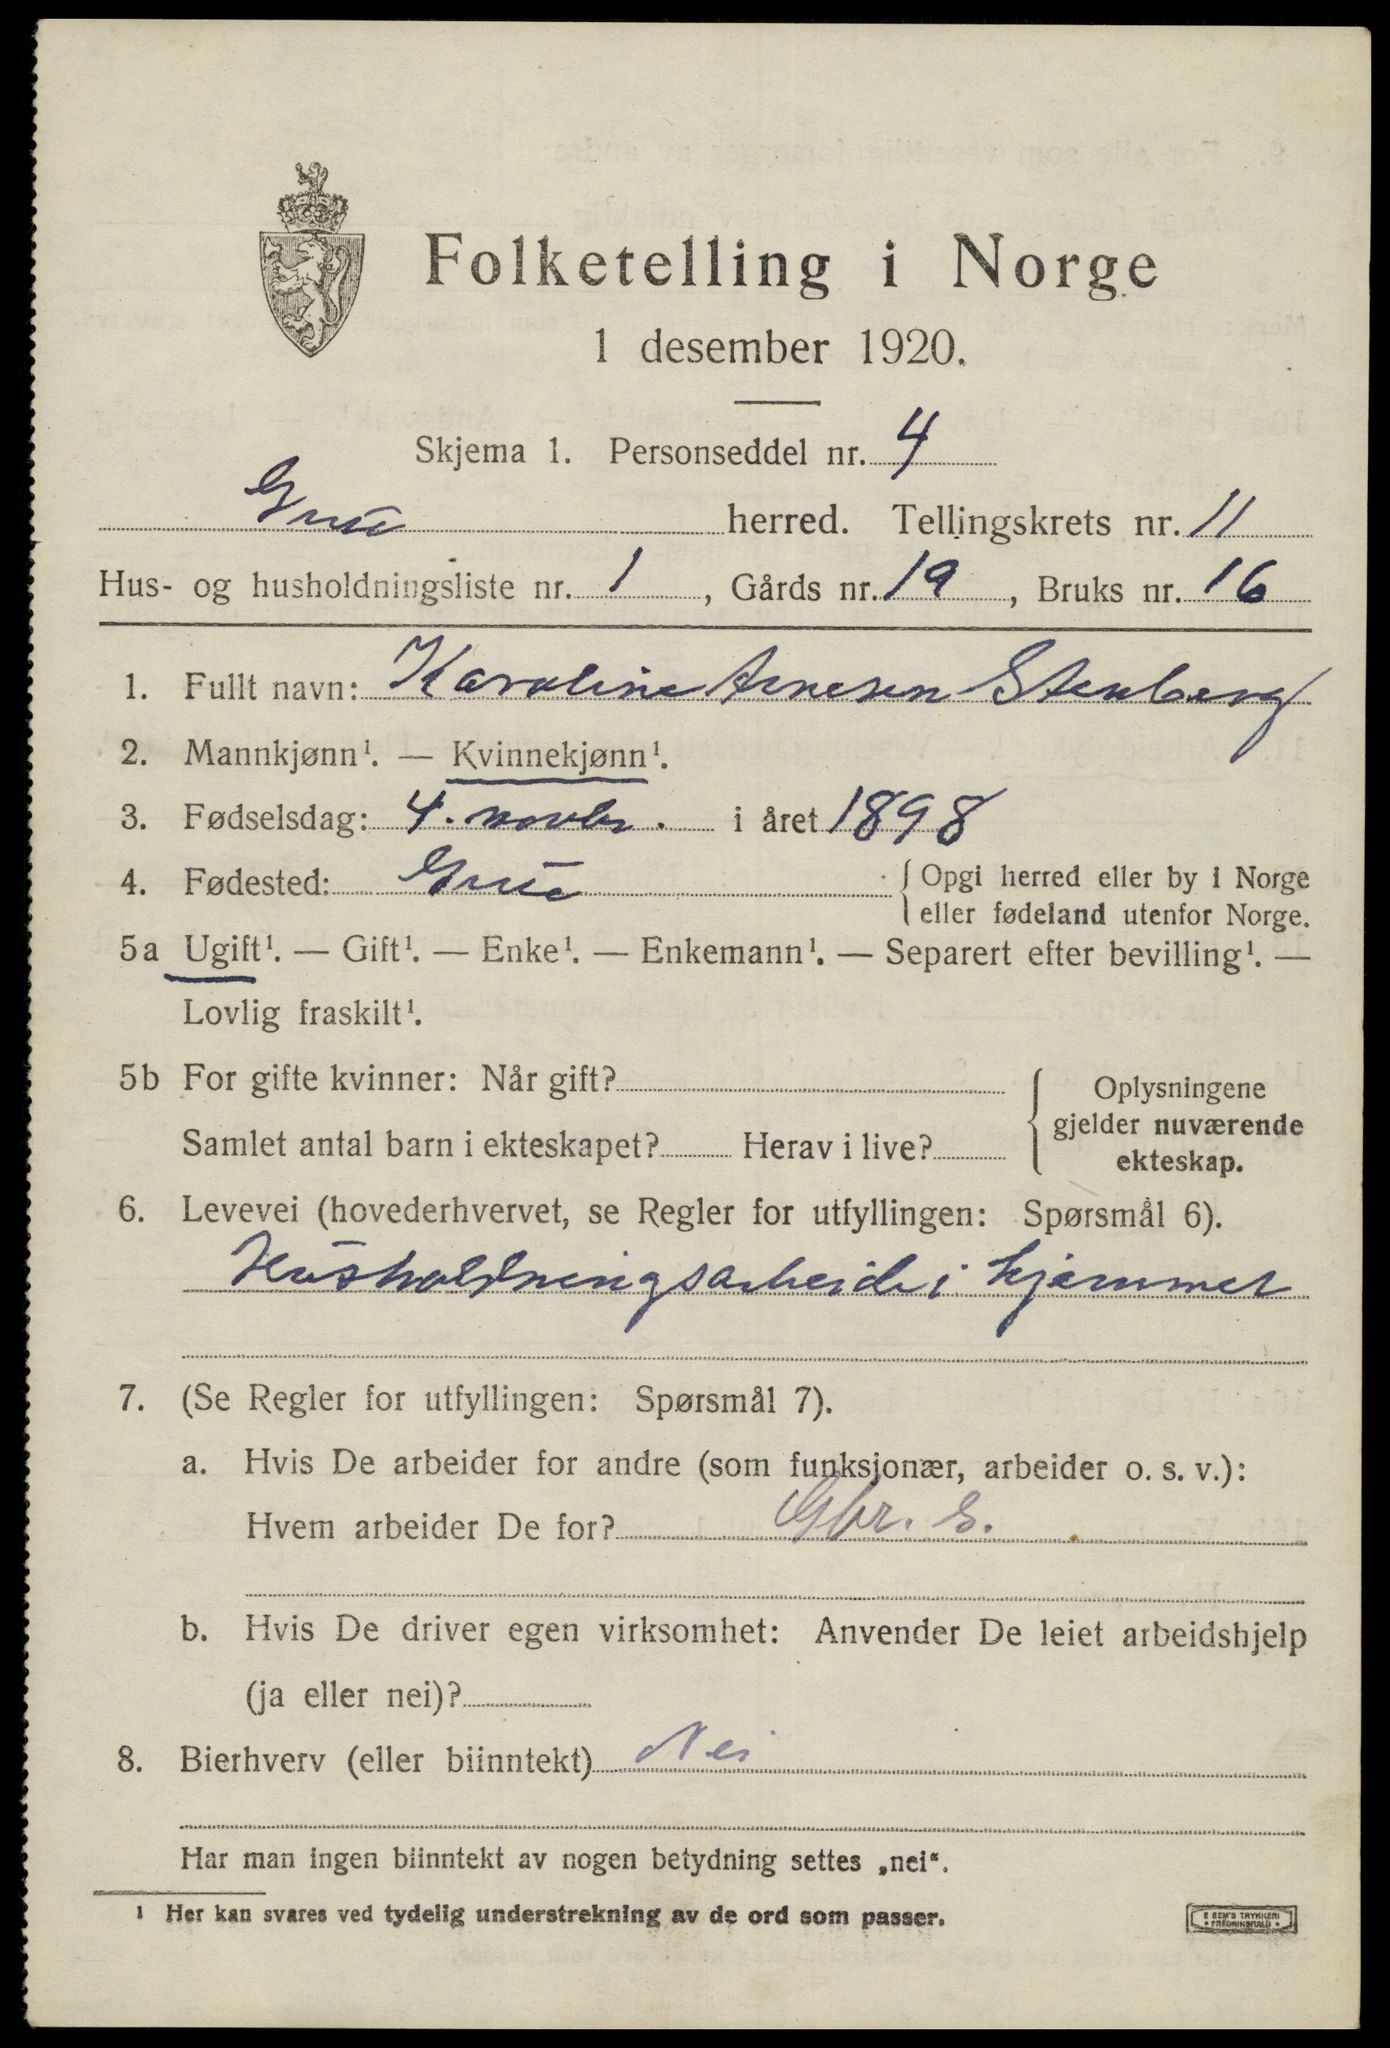 Folketelling i Norge
1 desember 1920.
Skjema 1. Personseddel nr. 4
Grue herred. Tellingskrets nr. 11
Hus- og husholdningsliste nr. 1, Gårds nr. 19, Bruks nr. 16
1. Fullt navn: Karoline Arnesen Stenberg
2. Mannkjønn¹. — Kvinnekjønn¹.
3. Fødselsdag: 4. novbr. i året 1898
4. Fødested: Grue { Opgi herred eller by i Norge
eller fødeland utenfor Norge.
5a Ugift¹. — Gift¹. — Enke¹. — Enkemann¹. — Separert efter bevilling¹. —
Lovlig fraskilt¹.
5b For gifte kvinner: Når gift? { Oplysningene
gjelder nuværende
Samlet antal barn i ekteskapet? Herav i live?
ekteskap.
6. Levevei (hovederhvervet, se Regler for utfyllingen: Spørsmål 6).
Husholdningsarbeide i hjemmet
7. (Se Regler for utfyllingen: Spørsmål 7).
a. Hvis De arbeider for andre (som funksjonær, arbeider o. s. v.):
Hvem arbeider De for? Gbr. S.
b. Hvis De driver egen virksomhet: Anvender De leiet arbeidshjelp
(ja eller nei)?
8. Bierhverv (eller biinntekt) Nei
Har man ingen biinntekt av nogen betydning settes „nei“.
1 Her kan svares ved tydelig understrekning av de ord som passer.
E SEM'S TRYKKERI
• FREDRIKSHALD •